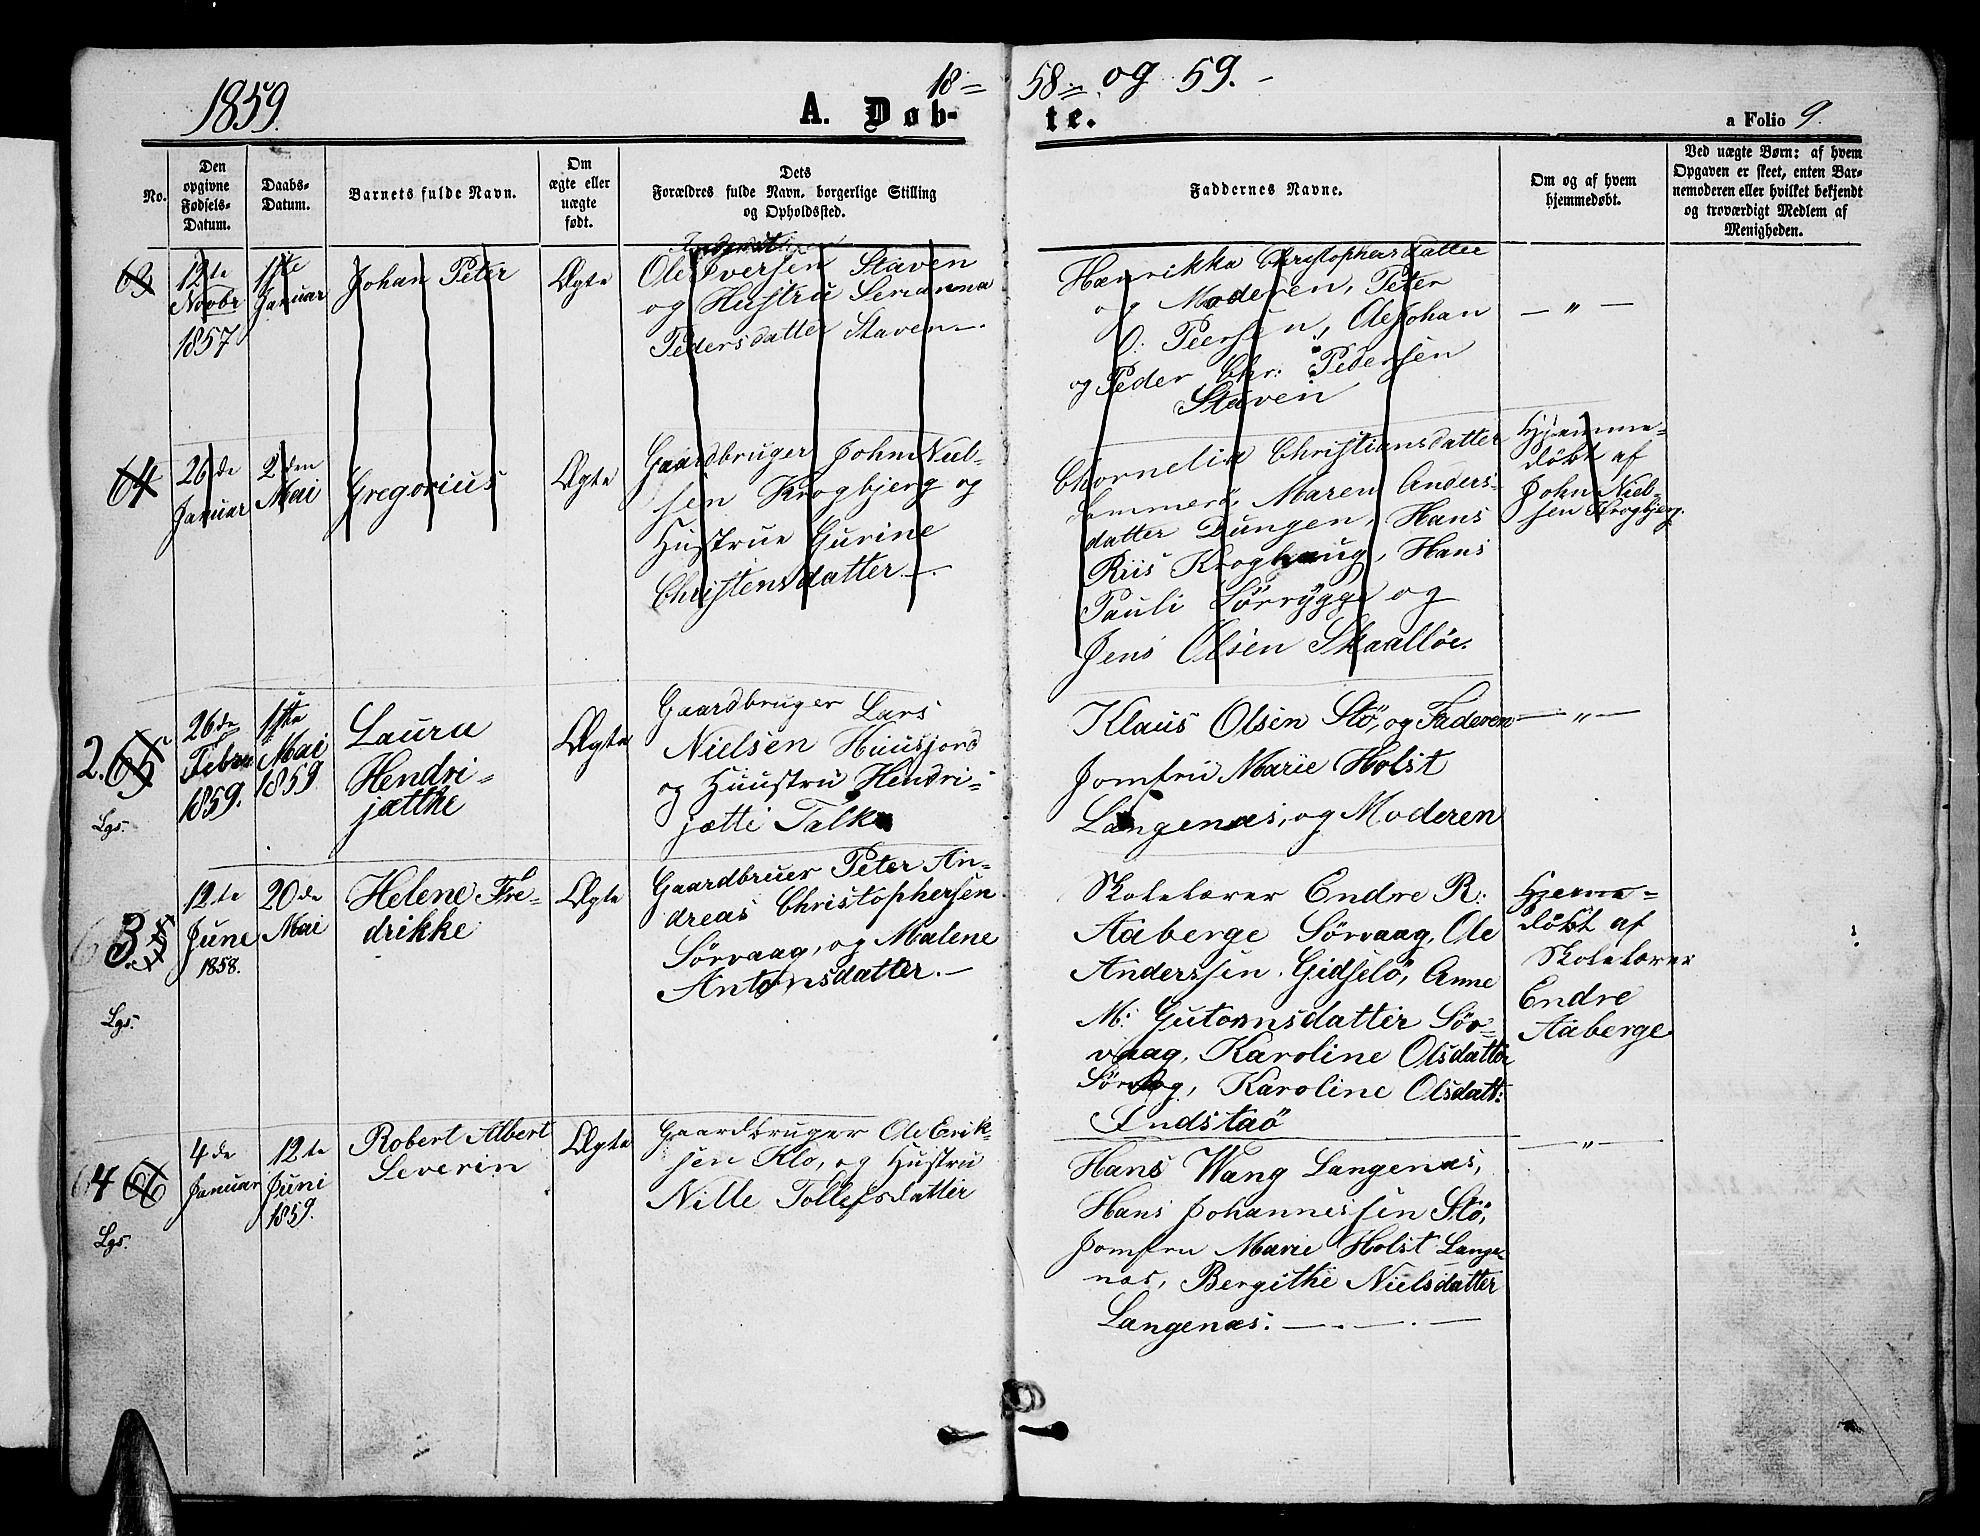 1859.
18 58 og 59.
A. Døbte.
a Folio 9.
No.
Den opgivne Fødsels-Datum.
Daabs-Datum.
Barnets fulde Navn.
Om ægte eller uægte født.
Dets Forældres fulde Navn, borgerlige Stilling og Opholdssted.
Faddernes Navne.
Om og af hvem hjemmedøbt.
Ved uægte Børn: af hvem Opgaven er skeet, enten Barnemoderen eller hvilket bekjendt og troværdigt Medlem af Menigheden.
63
12te
Novbr
1857
1ste
Januar
Johan Peter
Ægte
Ole Iversen Staven
og Hustru Serianna
Pedersdatter Staven
Henrikka Christophersdatter
og Moderen, Peter
O: Peersen, Ole Johan
og Peder Chr: Pedersen
Staven
— " —
64
26de
Januar
2den
Mai
Gregorius
Ægte
Gaardbruger John Niel-
sen Krogbjerg og
Hustrue Gurine
Christensdatter.
Chornelia Christiansdatter
Sommerö, Maren Anders-
datter Dungen, Hans
Riis Kroghaug, Hans
Pauli Sörrygge og
Jens Olsen Skaallöe.
Hjemme-
døbt af
John Niel-
sen Krogbjerg.
2. 65
Lgs.
26de
Febru
1859.
11te
Mai
1859
Laura
Hendri-
jættke
Ægte
Gaardbruger Lars
Nielsen Huusjord
og Huustru Hendri-
jætti Falk
Klaus Olsen Stö, og Faderen
Jomfru Marie Holst
Langenæs, og Moderen
— " —
3.
Lgs.
12te
June
1858.
20de
Mai
Helene Fre-
drikke
Ægte
Gaardbruer Peter An-
dreas Christophersen
Sörvaag, og Malene
Antonsdatter.
Skolelærer Endre R:
Aaberge Sörvaag, Ole
Anderssen Gidselö, Anne
M: Gutormsdatter Sör-
vaag, Karoline Olsdatter
Sörvaag, Karoline Olsdatt:
Indstaö
Hjeme-
døbt af
Skolelærer
Endre
Aaberge
4 66
Lgs.
4de
Januar
12te
Juni
1859.
Robert Albert
Severin
Ægte
Gaardbruger Ole Erik-
sen Klo, og Hustru
Nille Tollefsdatter
Hans Wang Langenæs,
Hans Johannessen Stö,
Jomfru Marie Holst Lange-
næs, Bergithe Nielsdatter
Langenæs.
— " —